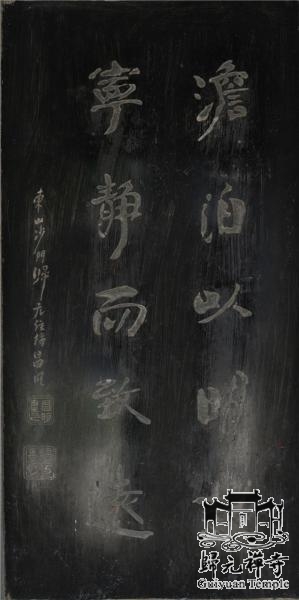 澹泊以明
寧静而致遠
東山沙門歸元
歸元禅寺
Guiyuan Temple